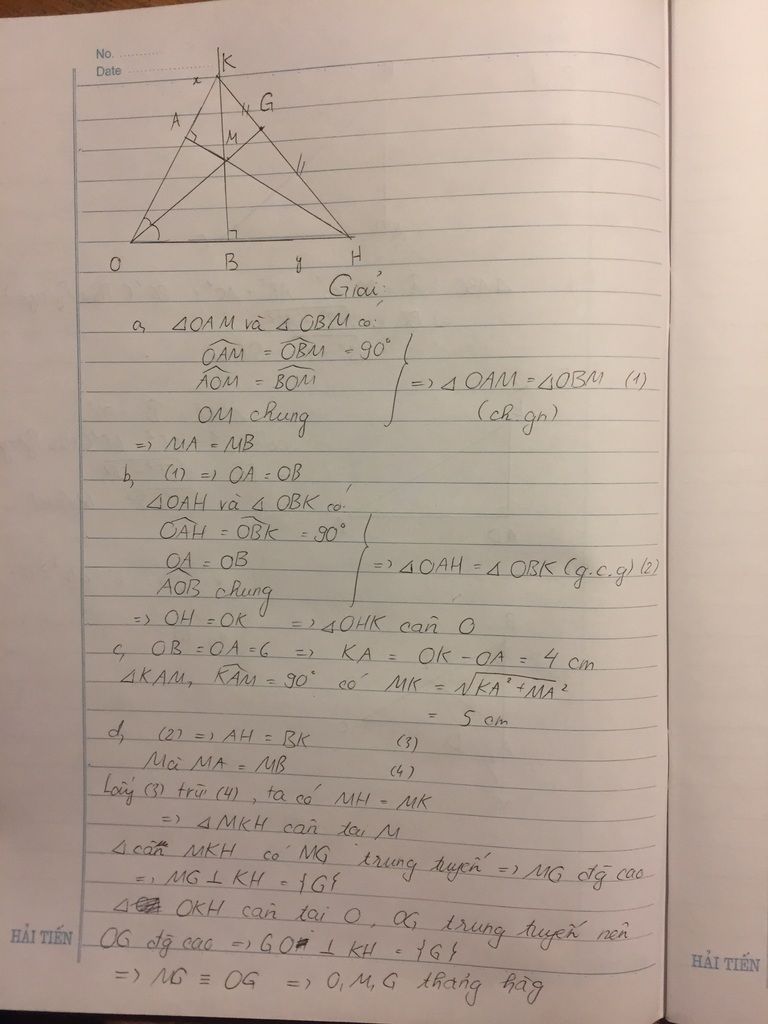 No.
Date
K
x
G
A
M
O
B
y
H
Giải:
a, △OAM và △OBM có:
OAM = OBM = 90°
AOM = BOM
OM chung
=> △OAM = △OBM (1)
(ch.gn)
=> MA = MB
b, (1) => OA = OB
△OAH và △OBK có:
OAH = OBK = 90°
OA = OB
AOB chung
=> △OAH = △OBK (g.c.g) (2)
=> OH = OK => △OHK cân O
c, OB = OA = 6 => KA = OK - OA = 4 cm
△KAM, KAM = 90° có MK = √KA² + MA²
= 5 cm
d, (2) => AH = BK (3)
Mà MA = MB (4)
Lấy (3) trừ (4), ta có MH = MK
=> △MKH cân tại M
△ cân MKH có MG trung tuyến => MG đg cao
=> MG ⊥ KH = {G}
△ OKH cân tại O, OG trung tuyến nên
OG đg cao => GO ⊥ KH = {G}
=> MG ≡ OG => O, M, G thẳng hàg
HẢI TIẾN
HẢI TIẾN